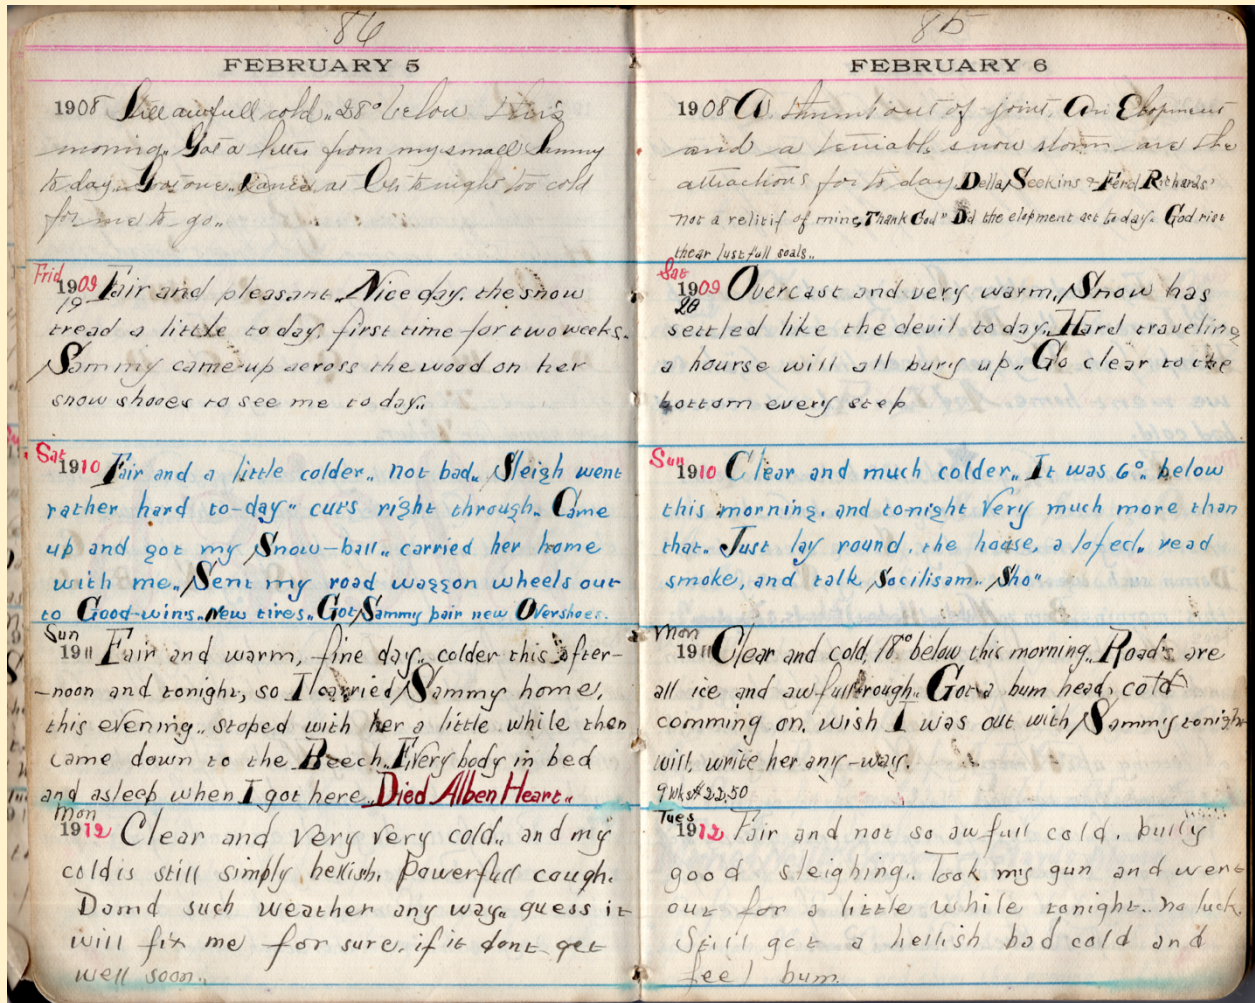 86
FEBRUARY 5
1908 Still awfull cold,, 28° below this
morning,, Got a letter from my small Sammy
to day. Good one,, Dance at tonight too cold
for me to go,,
Frid
1909 Fair and pleasant,, Nice day. the snow
19
tread a little to day, first time for two weeks.
Sammy came up across the wood on her
snow shooes to see me to day,,
Sat
1910 Fair and a little colder,, not bad,, Sleigh went
rather hard to-day" cuts right through,, Came
up and got my Snow-ball,, carried her home
with me,, Sent my road waggon wheels out
to Good-wins,, New tires,, Got Sammy pair new Overshoes.
Sun
1911 Fair and warm, fine day,, colder this after-
-noon and tonight, so I carried Sammy home,
this evening,, stoped with her a little while then
came down to the Beech,, Every body in bed
and asleep when I got here,, Died Alben Heart,,
Mon
1912 Clear and very very cold,, and my
cold is still simply hellish. Powerfull caugh.
Damd such weather any way,, guess it
will fix me for sure, if it dont get
well soon,,
85
FEBRUARY 6
1908 A thumb out of joint, An Elopment
and a terriable snow storm are the
attractions for to day, Della Seekins & Ferd Richards'
not a relitif of mine, Thank God" Did the elopment act to day. God rist
thear lustfull soals,,
Sat
1909 Overcast and very warm, Snow has
20
settled like the devil to day,, Hard traveling
a hourse will all bury up,, Go clear to the
bottom every step
Sun
1910 Clear and much colder,, It was 6° below
this morning, and tonight very much more than
that. Just lay round, the house, a lofed,, read
smoke, and talk Socilisam,, Sho"
Mon
1911 Clear and cold, 18° below this morning,, Road's are
all ice and awfull rough,, Got a bum head, cold
comming on, wish I was out with Sammy tonight
will, write her any-way.
9 wks $22.50
Tues
1912 Fair and not so awfull cold, bully
good sleighing,, Took my gun and went
out for a little while tonight,, no luck.
Still got a hellish bad cold and
feel bum.